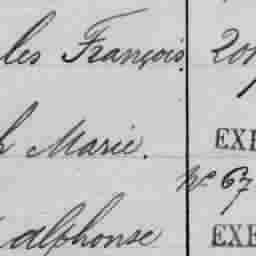 les François. 20
h Marie. EXE
Nº 67
alphonse EXE